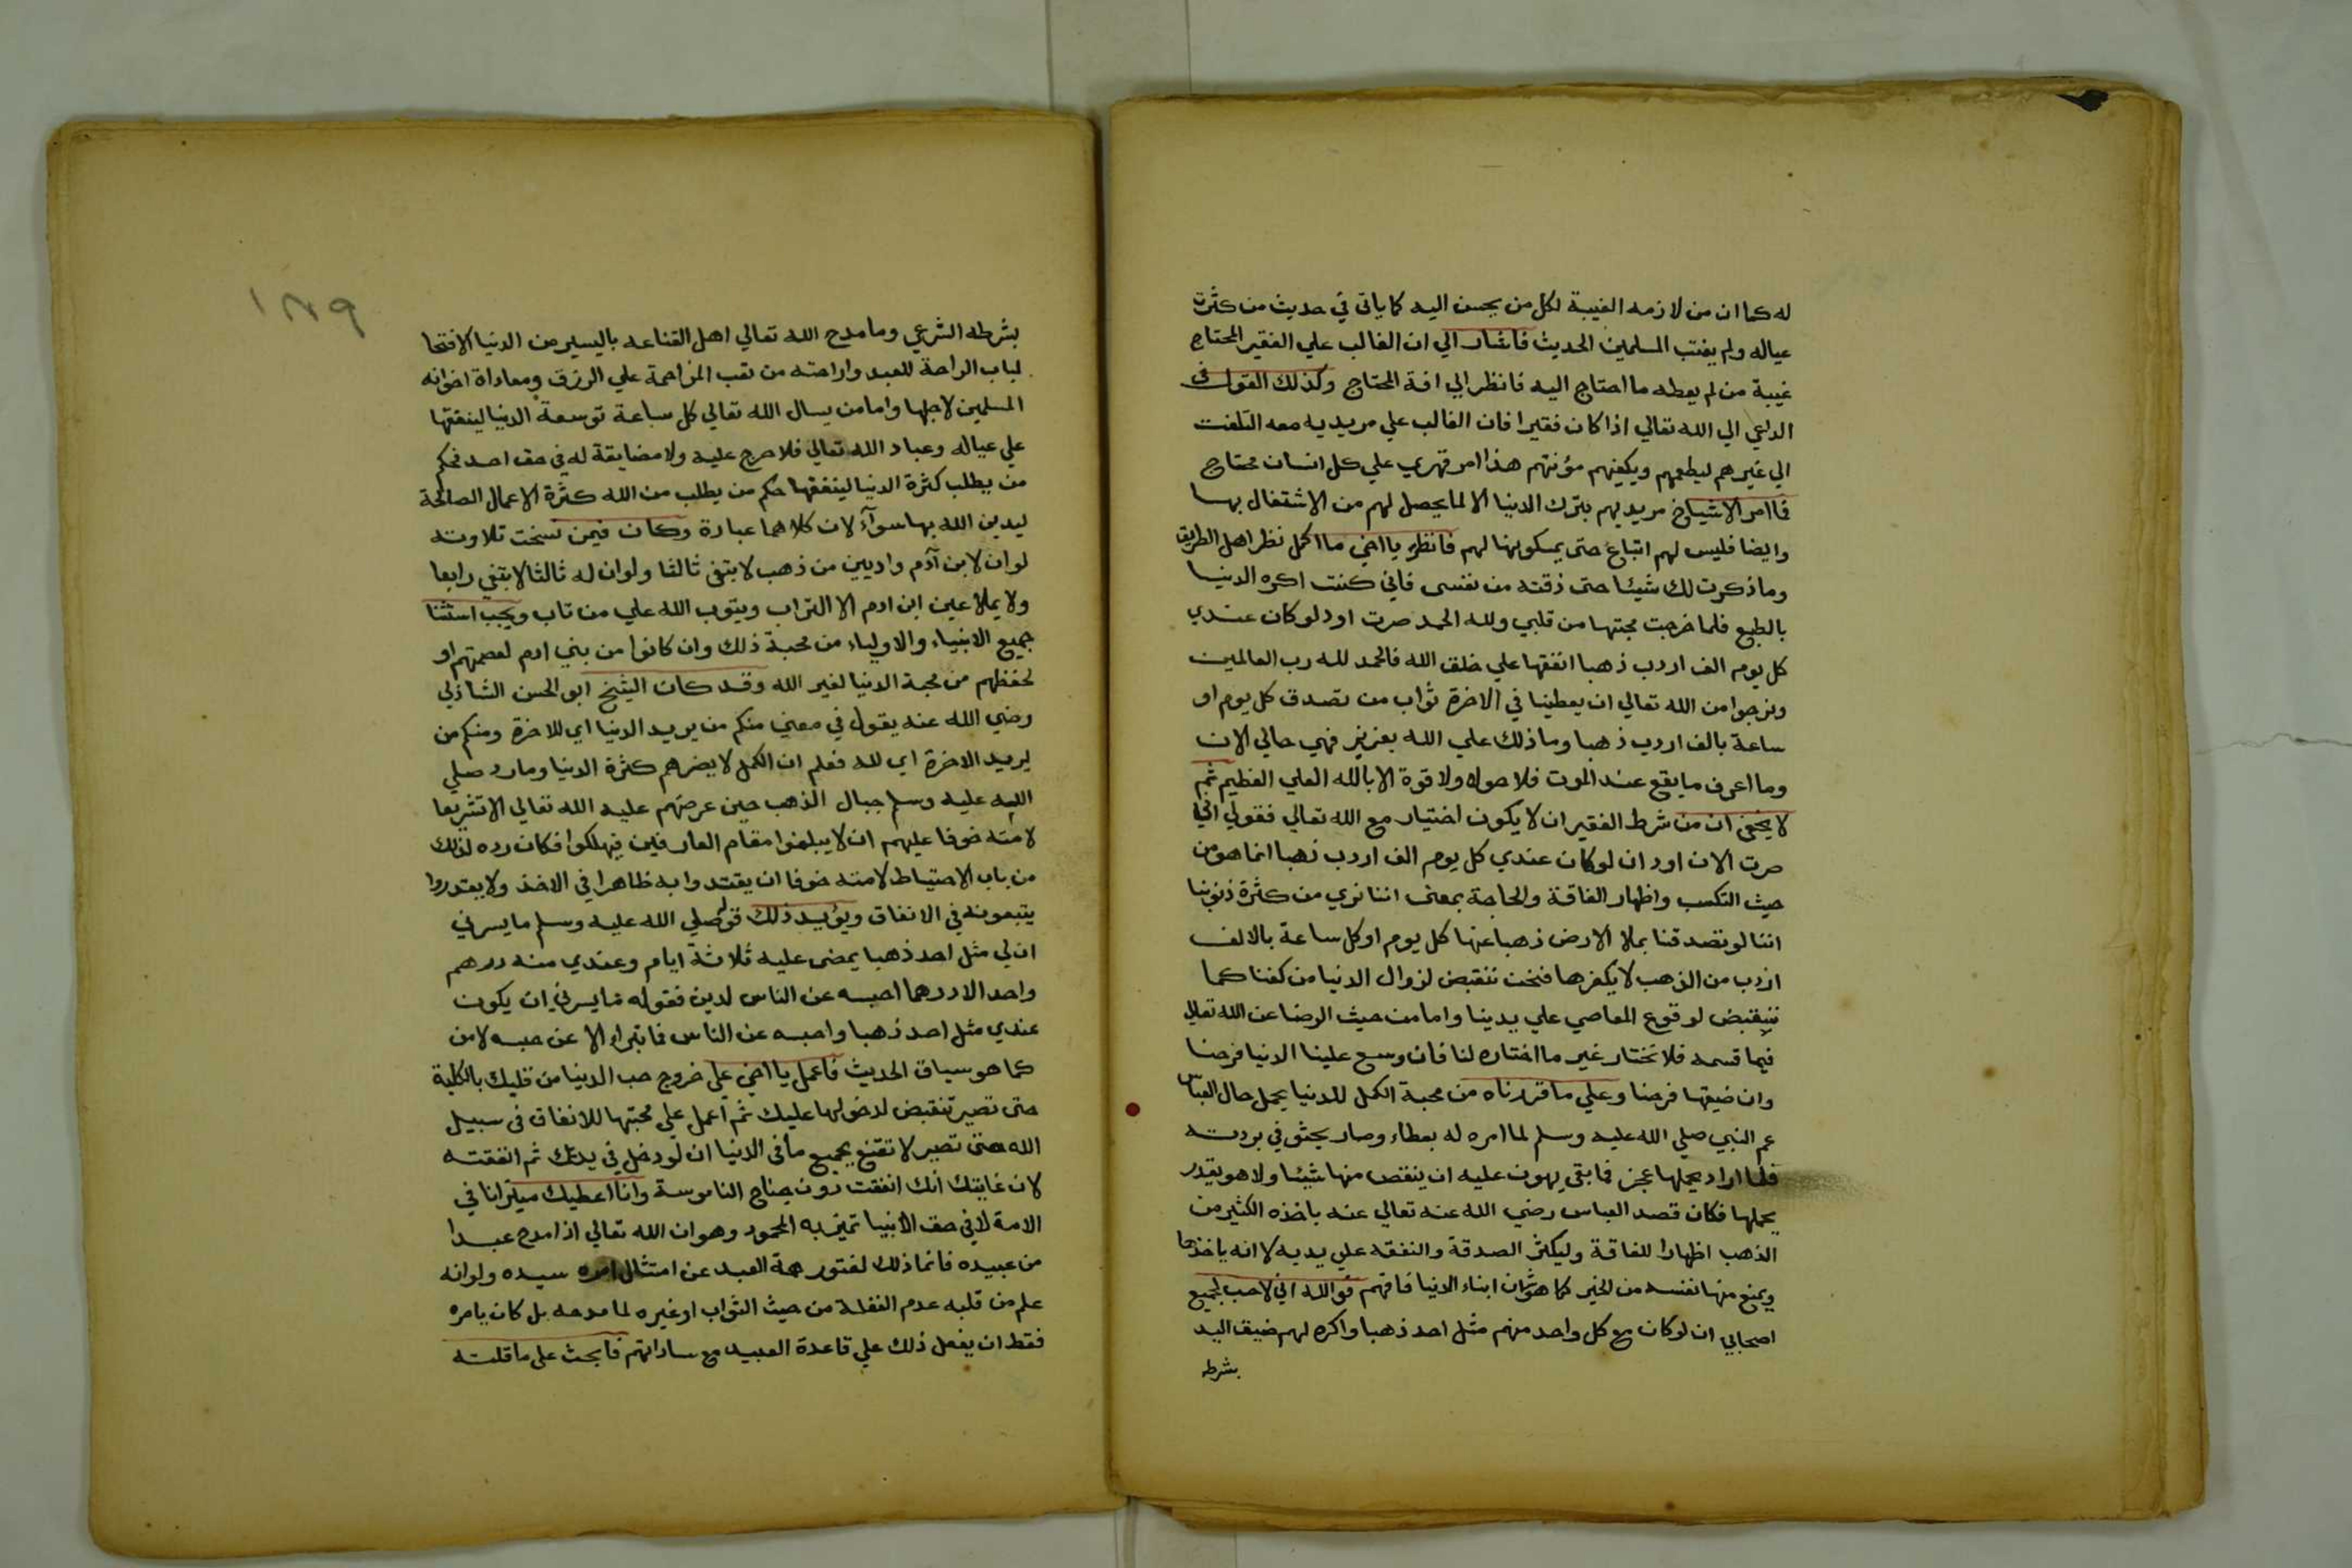 له كما ان من لازمه الغيبة لكل من يحسن اليه كما ياتي في حديث من كثرت
عياله ولم يغتب المسلمين الحديث فاشار الي ان الغالب علي الفقير المحتاج
غيبة من لم يعطه ما احتاج اليه فانظر الي افة المحتاج وكذلك القول في
الداعي الي الله تعالي اذا كان فقيرا فان الغالب علي مريديه معه التلفت
الي غيرهم ليطعمهم ويكفيهم مؤنتهم هذا امر قهري علي كل انسان محتاج
فما امر الاشياخ مريديهم بترك الدنيا الا لما يحصل لهم من الاشتغال بها
وايضا فليس لهم اتباع حتى يمسكونها لهم فانظر يا اخي ما اكمل نظر اهل الطريق
وما ذكرت لك شيئا حتى ذقته من نفسى فاني كنت اكره الدنيا
بالطبع فلما خرجت محبتها من قلبي ولله الحمد صرت اود لو كان عندي
كل يوم الف اردب ذهبا انفقها علي خلق الله فالحمد لله رب العالمين
ونرجوا من الله تعالي ان يعطينا في الاخرة ثواب من تصدق كل يوم او
ساعة بالف اردب ذهبا وما ذلك علي الله بعزيز فهي حالي الان
وما اعرف ما يقع عند الموت فلا حول ولا قوة الا بالله العلي العظيم ثم
لا يخفى ان من شرط الفقير ان لا يكون اختيار مع الله تعالي فقولي اني
صرت الان اود ان لو كان عندي كل يوم الف اردب ذهبا انما هو من
حيث التكسب واظهار الفاقة والحاجة بمعنى اننا نري من كثرة ذنوبنا
اننا لو تصدقنا بملا الارض ذهبا عنها كل يوم او كل ساعة بالالف
اردب من الذهب لا يكفرها فنحن ننقبض لزوال الدنيا من كفنا كما
ننقبض لوقوع المعاصي علي يدينا واما من حيث الرضا عن الله تعالي
فيما قسمه فلا نختار غير ما اختاره لنا فان وسع علينا الدنيا فرضنا
وان ضيقها فرضنا وعلي ما قررناه من محبة الكمل للدنيا يحمل حال العباس
عم النبي صلي الله عليه وسلم لما امره له بعطاء وصار يحثو في بردته
فلما اراد يحملها عجز فما بقى يهون عليه ان ينقص منها شيئا ولا هو يقدر
يحملها فكان قصد العباس رضي الله عنه تعالي عنه باخذه الكثير من
الذهب اظهارا للفاقة وليكثر الصدقة والنفقه علي يديه لا انه ياخذها
ويمنع منها نفسه من الخير كما هو شان ابناء الدنيا فافهم فوالله اني لاحب لجميع
اصحابي ان لو كان مع كل واحد منهم مثل احد ذهبا واكره لهم ضيق اليد
بشرطه
١٢٩
بشرطه الشرعي وما مدح الله تعالي اهل القناعه باليسير من الدنيا الا فتحا
لباب الراحة للعبد واراحته من تعب المزاحمة علي الرزق ومعاداة اخوانه
المسلمين لاجلها واما من يسال الله تعالي كل ساعة توسعة الدنيا لينفقها
علي عياله وعباد الله تعالي فلا حرج عليه ولا مضايقة له في حق احد فحكم
من يطلب كثرة الدنيا لينفقها حكم من يطلب من الله كثرة الاعمال الصالحة
ليدين الله بها سوآء لان كلاهما عبادة وكان فيمن نسخت تلاوته
لو ان لابن آدم واديين من ذهب لابتغى ثالثا ولو ان له ثالثا لابتغي رابعا
ولا يملا عين ابن ادم الا التراب ويتوب الله علي من تاب ويجب استثنا
جميع الانبياء والاولياء من محبة ذلك وان كانوا من بني ادم لعصمتهم او
لحفظهم من محبة الدنيا لغير الله وقد كان الشيخ ابو الحسن الشاذلي
رضي الله عنه يقول في معني منكم من يريد الدنيا اي للاخرة ومنكم من
يريد الاخرة اي لله فعلم ان الكمل لا يضرهم كثرة الدنيا وما رد صلي
الله عليه وسلم جبال الذهب حين عرضهم عليه الله تعالي الا تشريعا
لامته خوفا عليهم ان لا يبلغوا مقام العارفين فيهلكوا فكان رده لذلك
من باب الاحتياط لامته خوفا ان يقتدوا به ظاهرا في الاخذ ولا يقدروا
يتبعونه في الانفاق ويؤيد ذلك قوله صلي الله عليه وسلم ما يسرني
ان لي مثل احد ذهبا يمضى عليه ثلاثة ايام وعندي منه درهم
واحد الا درهما احبسه عن الناس لدين فقوله ما يسرني ان يكون
عندي مثل احد ذهبا واحبسه عن الناس فما تبرا الا عن حبسه لا من
كما هو سياق الحديث فاعمل يا اخي علي خروج حب الدنيا من قلبك بالكلية
حتى تصير تنقبض لدخولها عليك ثم اعمل علي محبتها للانفاق في سبيل
الله حتى تصير لا تقنع بجميع ما في الدنيا ان لو دخل في يدك ثم انفقته
لان غايتك انك انفقت دون جناح الناموسة وانا اعطيك ميزانا في
الامة لا في حق الانبيا تميز به المحمود وهو ان الله تعالي اذا مدح عبدا
من عبيده فانما ذلك لفتور همة العبد عن امتثال امره سيده ولو انه
علم من قلبه عدم الغفلة من حيث الثواب او غيره لما مدحه بل كان يامره
فقط ان يفعل ذلك علي قاعدة العبيد مع ساداتهم فابحث على ما قلته